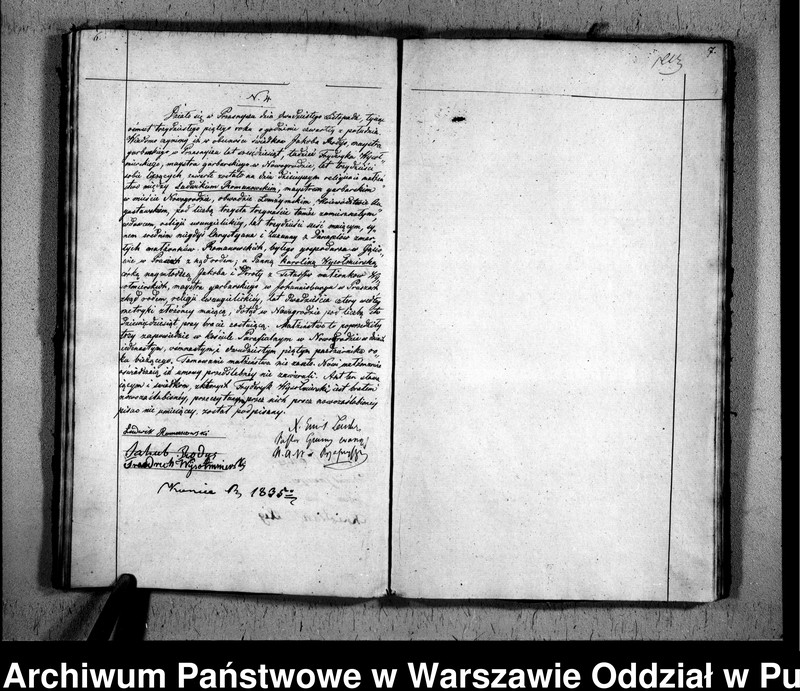 6.
7.
N. 4
Działo się w Przasnyszu dnia dwudziestego Listopada, tysiąc
ośmset trzydziestego piątego roku o godzinie czwartej z południa.
Wiadomo czynimy iż w obecności świadków Jakuba majstra
garbarskiego w Przasnyszu lat tudzież Frydryka
majstra garbarskiego w Nowogrodzie, lat trzydzieści
sobie liczących, zawarte zostało na dniu dzisiejszym religijne małżeń
stwo między Ludwikiem Romanowskim, majstrem garbarskim
w mieście Nowogrodzie, obwodzie Łomżyńskim, Województwie Au
gustowskim, pod liczbą trzysta trzynaście tamże zamieszkałym
wdowcem, religii ewangielickiej, lat trzydzieści sześć mającym, sy
nem niegdyś Chrystyana i Zuzanny z zmar
łych małżonków Romanowskich, byłego gospodarza w
w Prusach z rodem; a Panną Karoliną Wysotminską
córką Jakuba i Doroty z małżonków Wy
sotminskich, majstra garbarskiego w Johannisburgu w Prusach
rodem, religii Ewangielickiej, lat dwadzieścia cztery według
metryki złożonej mającą, dotąd w Nowogrodzie pod liczbą Sto
Dziewięćdziesiąt przy bracie zostającą. Małżeństwo to poprzedziły
trzy zapowiedzie w kościele Parafialnym w Nowogrodzie w dniach
jedenastym, ośmnastym i dwudziestym piątym października ro
ku bieżącego. Tamowanie małżeństwa nie zaszło. Nowi małżonkowie
oświadczają iż umowy przedślubnej nie zawarli. Akt ten stawa
jącym i świadkom, z których Frydryk Wysotminski jest bratem
nowozaślubionej, przeczytany przez nich prócz nowozaślubionej
pisać nie umiejącej, został podpisany.
Ludwik Romanowski
X. Ernst
Pastor Gminy Ewang
Jakub
Friedrich Wysotminsky
R. 1835
Archiwum Państwowe w Warszawie Oddział w Pu